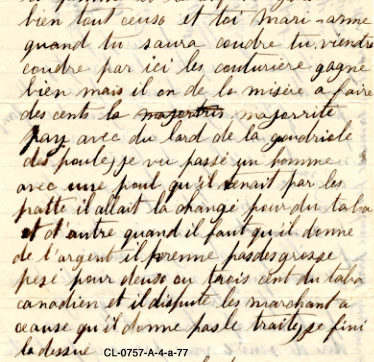 bien tout ceuso et toi mari-anne
quand tu saura coudre tu viendre
coudre par ici les couturière gagne
bien mais il on de la misère a faire
des cents la majeurtris majorrité
pay avec du lard de la goudriole
des poules, je vu passé un homme
avec une poul qu'il tenait par les
patte il allait la changé pour du taba
et d'autre quand il faut qu'il donne
de l'argent il prenne pas des grosse
pesé pour deuso ou trois cent du taba
canadien et il dispute les marchant a
ceause qu'il donne pas le traite, je fini
la dessue
CL-0757-A-4-a-77